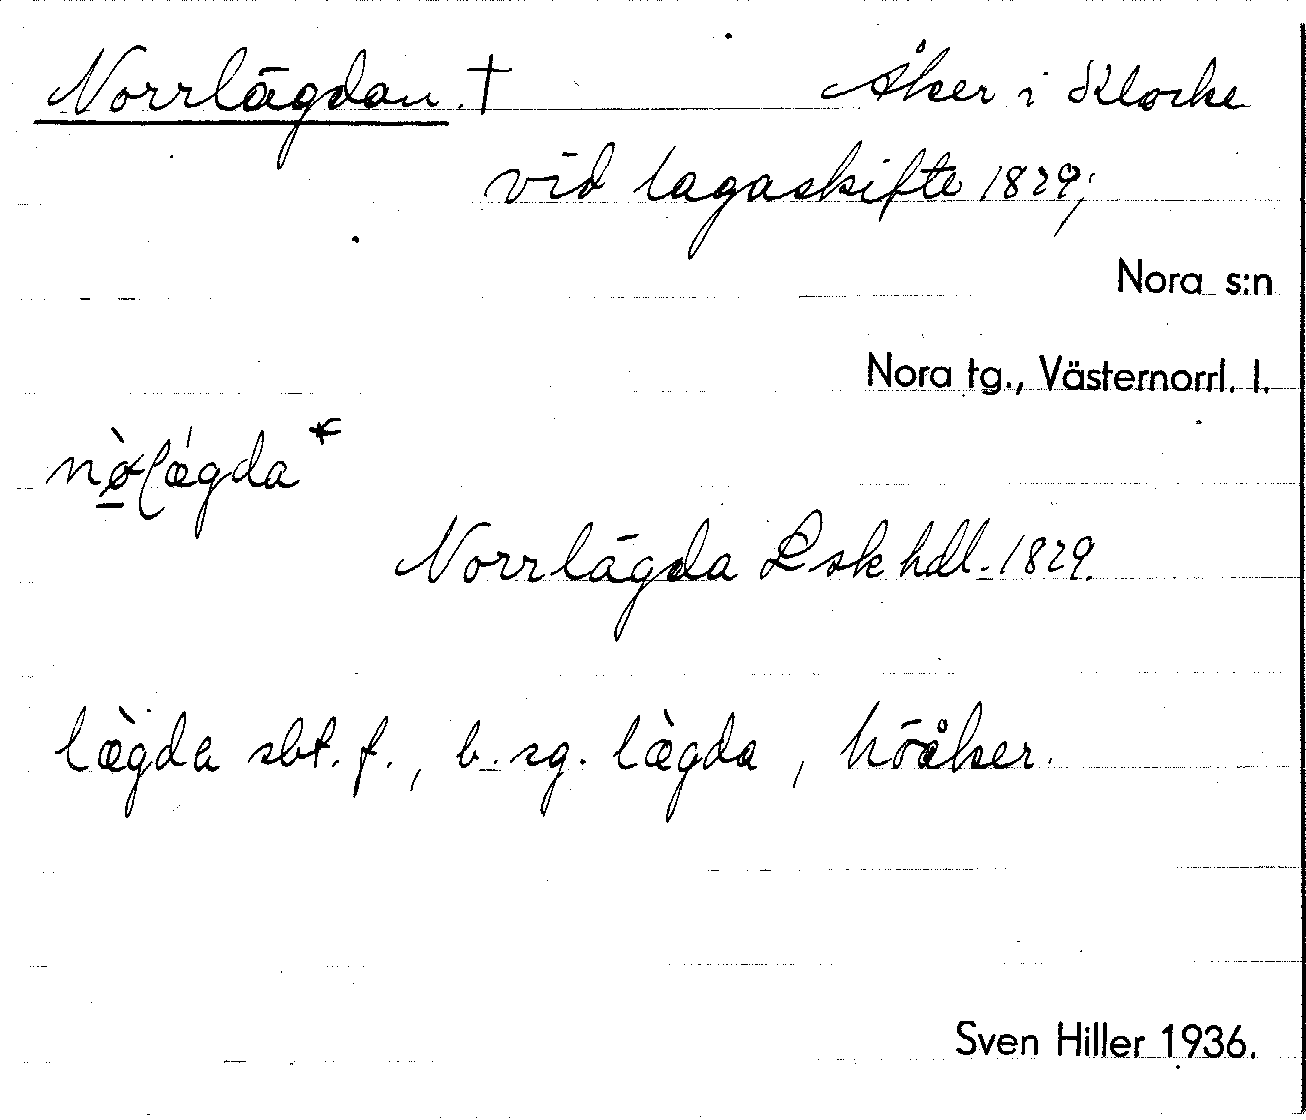 Norrlägdan. † Åker i Klocke
vid lagaskifte 1829;
Nora s:n
Nora tg., Västernorrl. l.
Norrlägda Lsk hdl. 1829.
lægda sbt. f., b. sg. lægda, höåker.
Sven Hiller 1936.